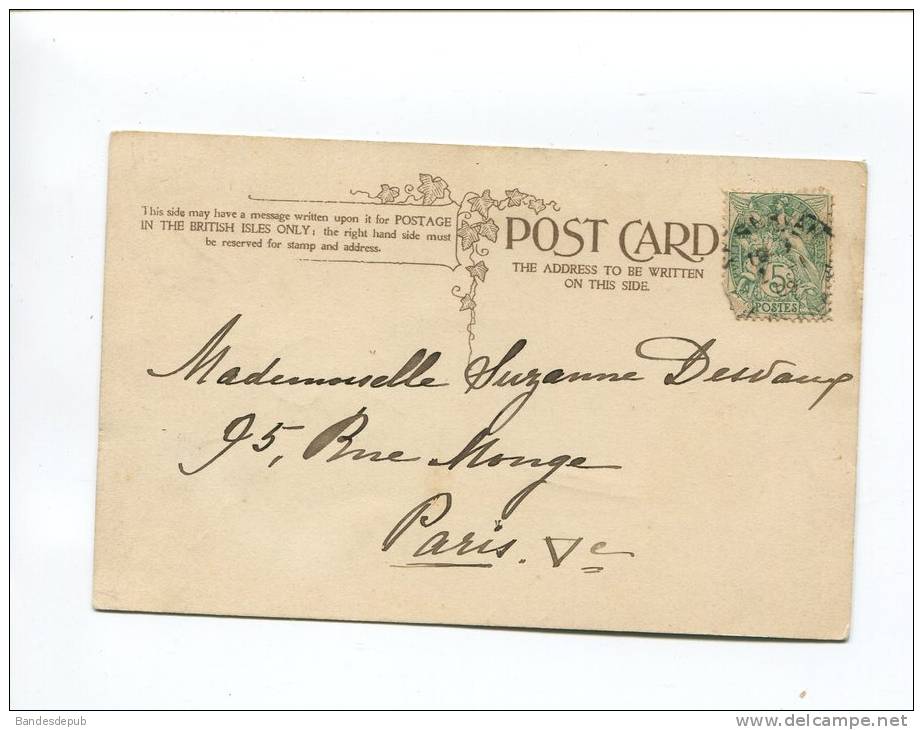 This side may have a message written upon it for POSTAGE
IN THE BRITISH ISLES ONLY; the right hand side must
be reserved for stamp and address.
POST CARD
THE ADDRESS TO BE WRITTEN
ON THIS SIDE.
5c
POSTES
Mademoiselle Suzanne Desvaux
95, Rue Monge
Paris. Ve
Bandesdepub
www.delcampe.net